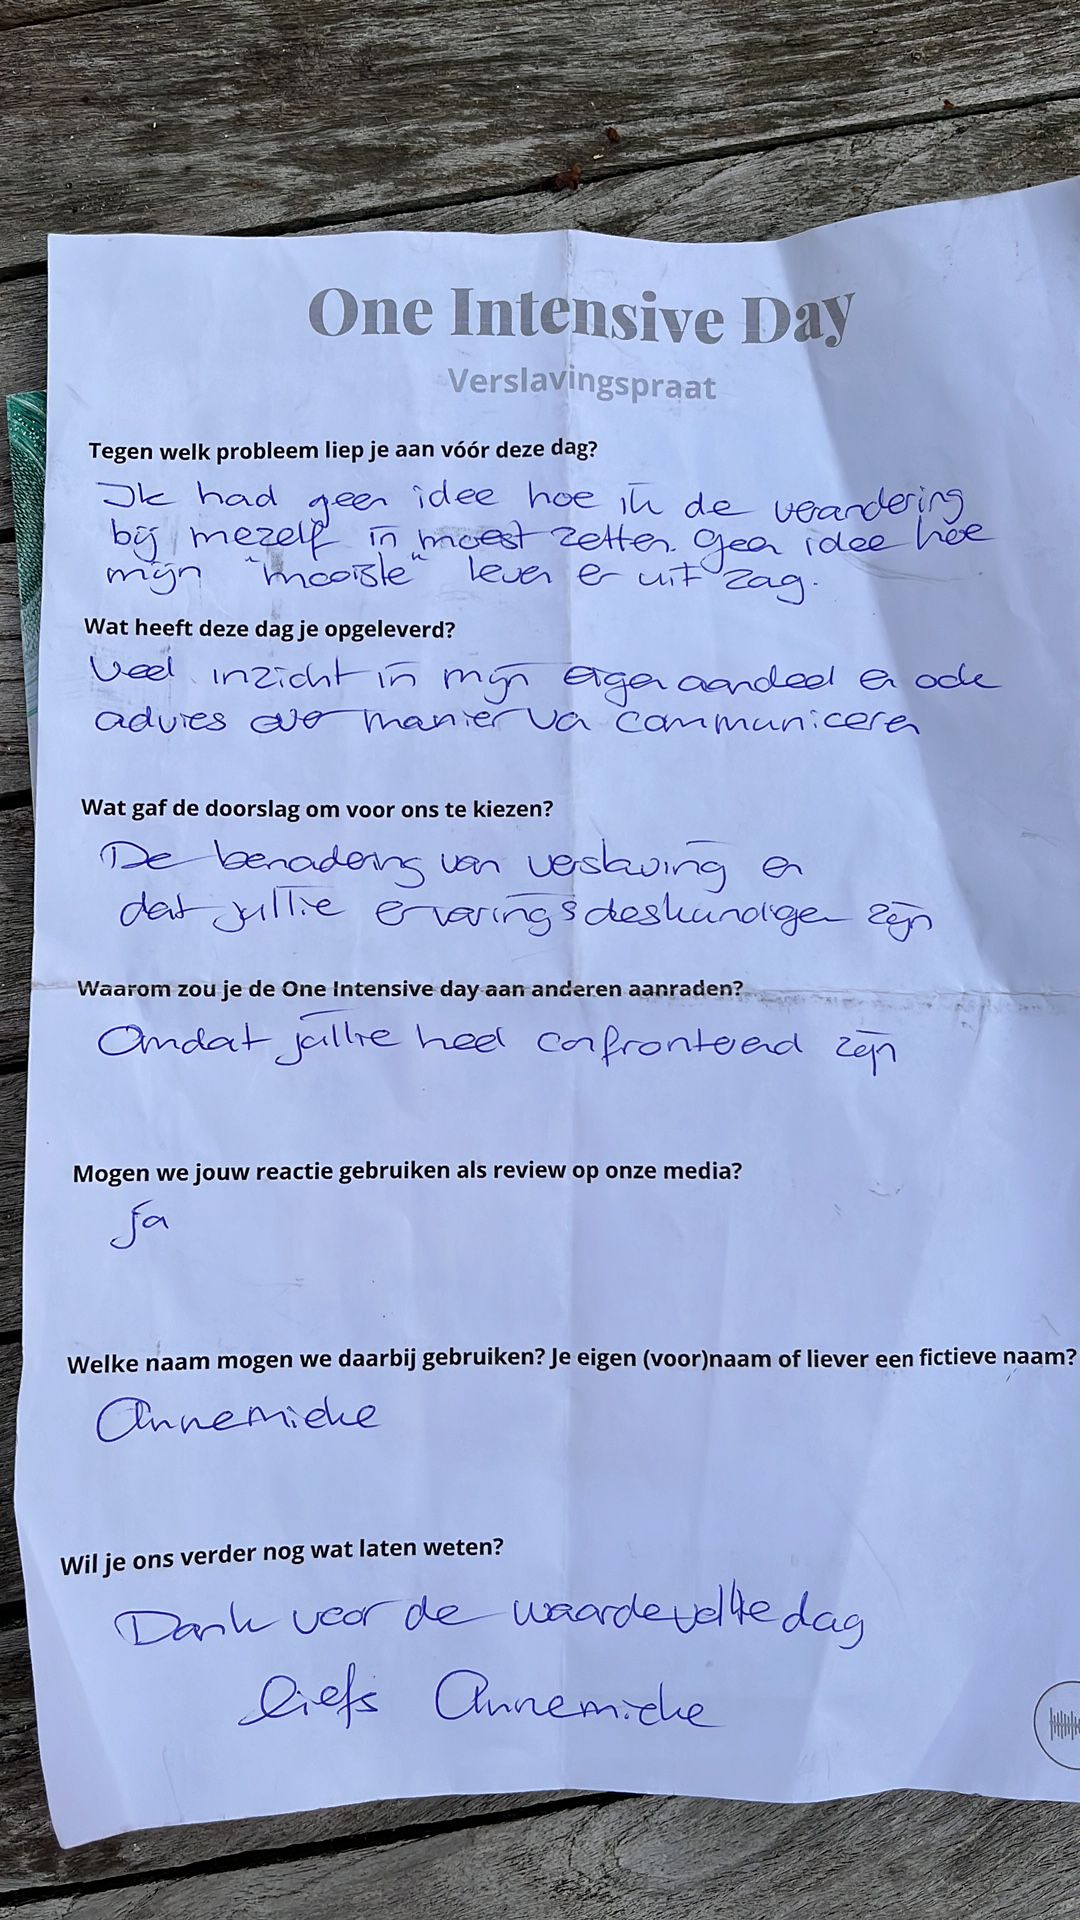 One Intensive Day
Verslavingspraat
Tegen welk probleem liep je aan vóór deze dag?
Ik had geen idee hoe ik de verandering
bij mezelf in moest zetten. Geen idee hoe
mijn "mooiste" leven er uit zag.
Wat heeft deze dag je opgeleverd?
Veel inzicht in mijn eigen aandeel en ook
advies over manier van communiceren
Wat gaf de doorslag om voor ons te kiezen?
De benadering van verslaving en
dat jullie ervaringsdeskundigen zijn
Waarom zou je de One Intensive day aan anderen aanraden?
Omdat jullie heel confronterend zijn
Mogen we jouw reactie gebruiken als review op onze media?
Ja
Welke naam mogen we daarbij gebruiken? Je eigen (voor)naam of liever een fictieve naam?
Annemieke
Wil je ons verder nog wat laten weten?
Dank voor de waardevolle dag
liefs Annemieke